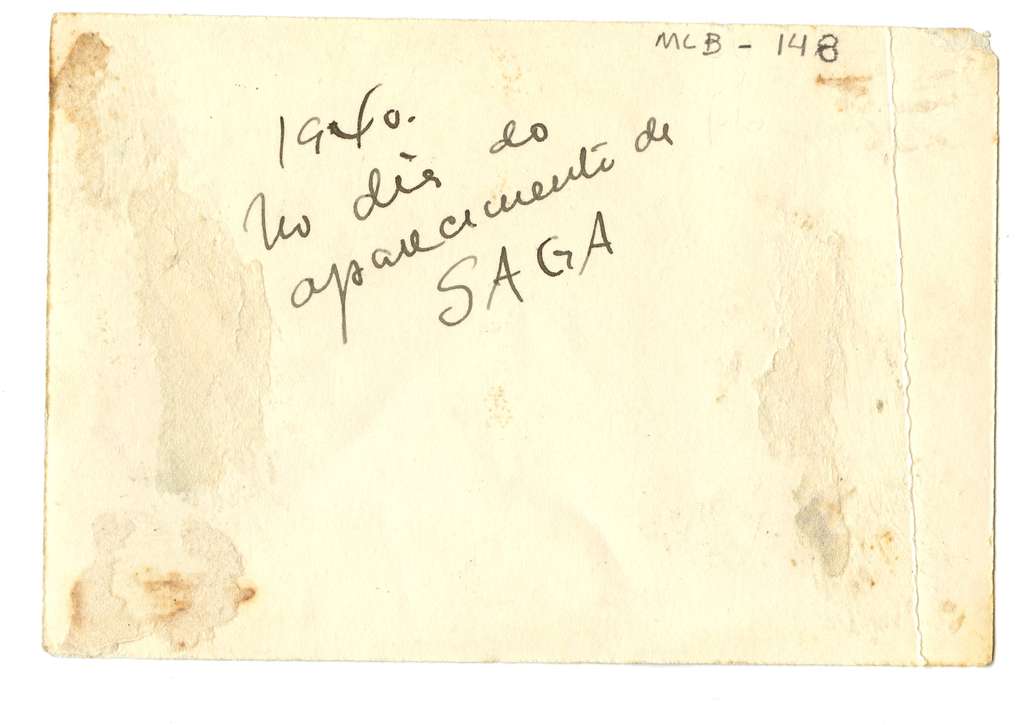 MLB - 148
1940.
No dia do
aparecimento de
SAGA